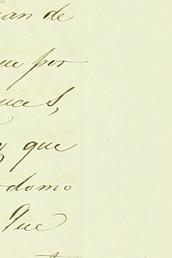 an de
ue por
uces,
y que
domo
Que